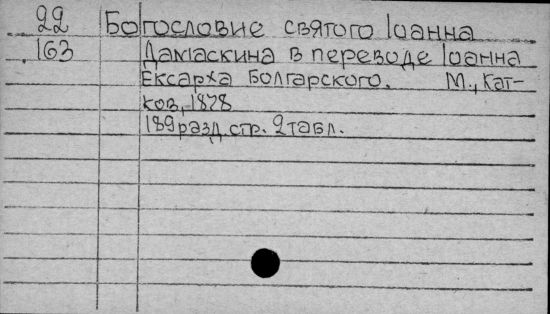 22 Богословие святого Іоанна
163 Дамаскина в переводе Іоанна
Ексарха Болгарского. М., Кат-
ков, 1878
189 разд. стр. 2 табл.